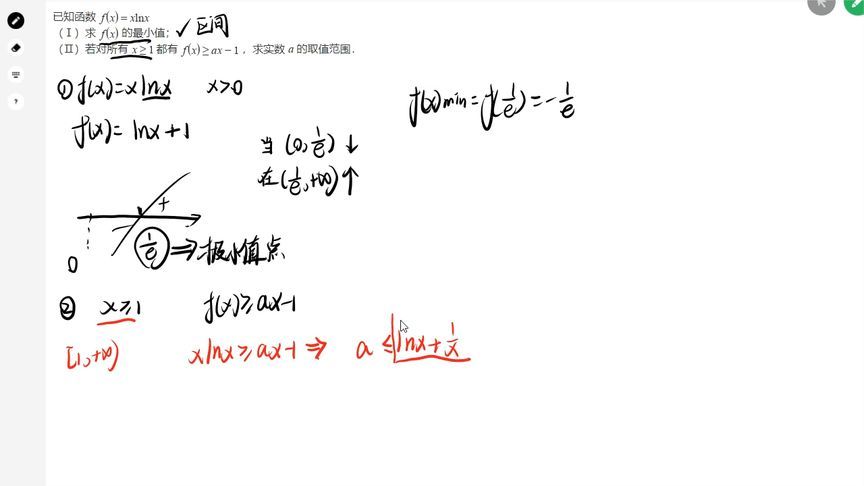 已知函数 f(x)=xlnx
(Ⅰ) 求 f(x) 的最小值; ✓ 区间
(Ⅱ) 若对所有 x≥1 都有 f(x)≥ax−1, 求实数 a 的取值范围.
① f(x)=x lnx x>0
f'(x)= lnx+1
f(x)min=f(1/e)=-1/e
当 (0, 1/e) ↓
在 (1/e, +∞) ↑
+
−
0
1/e ⇒ 极小值点
② x≥1 f(x)≥ax-1
[1,+∞) xlnx≥ax-1 ⇒ a ≤ lnx+1/x